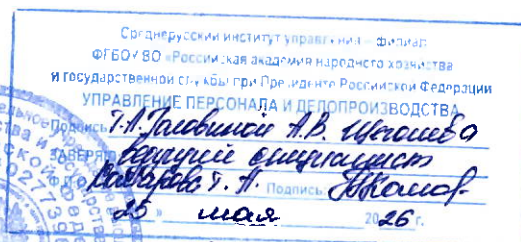 Среднерусский институт управления – филиал
ФГБОУ ВО «Российская академия народного хозяйства
и государственной службы при Президенте Российской Федерации
УПРАВЛЕНИЕ ПЕРСОНАЛА И ДЕЛОПРОИЗВОДСТВА
Подпись Т.А. Головиной А.В.
ЗАВЕРЯЮ ведущий специалист
Ф.И.О. Комарова Т. А. Подпись
25 » мая 2026 г.